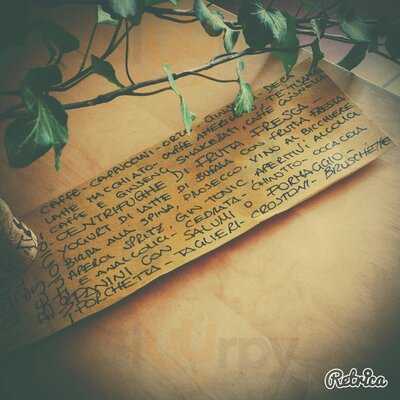 CAFFE - CAPPUCCINI - ORZO - GINSENG - DECA
LATTE MACCHIATO - CAFFE AMERICANO
CAFFE E GINSENG SHAKERATI, CAFFE
CENTRIFUGHE DI FRUTTA FRESCA -
YOGURT DI LATTE DI BUFALA CON FRUTTA FRESCA
BIRRA ALLA SPINA, PROSECCO, VINO A BICCHIERE
APEROL SPRITZ, GIN TONIC, APERITIVI ALCOLICI
E ANALCOLICI - CEDRATA - CHINOTTO - COCA COLA
PANINI CON SALUMI O FORMAGGIO
PORCHETTA - TAGLIERI - CROSTONI - BRUSCHETTE
Retrica